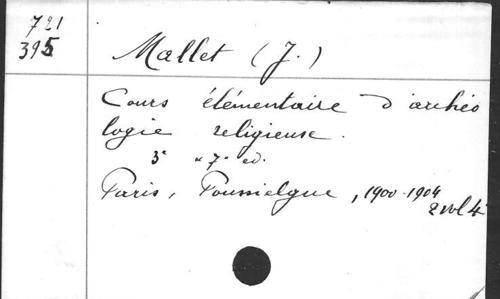 721
395
Mallet (J.)
Cours élémentaire d'archéo
logie religieuse.
3e & 7e ed.
Paris, Poussielgue, 1900-1904
2 vol 4°